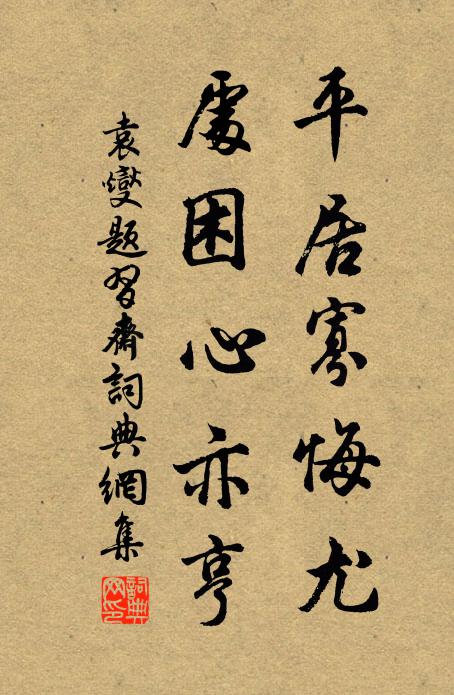 平居寡悔尤
處困心亦亨
袁燮題習齋詞典網集
詞典网印